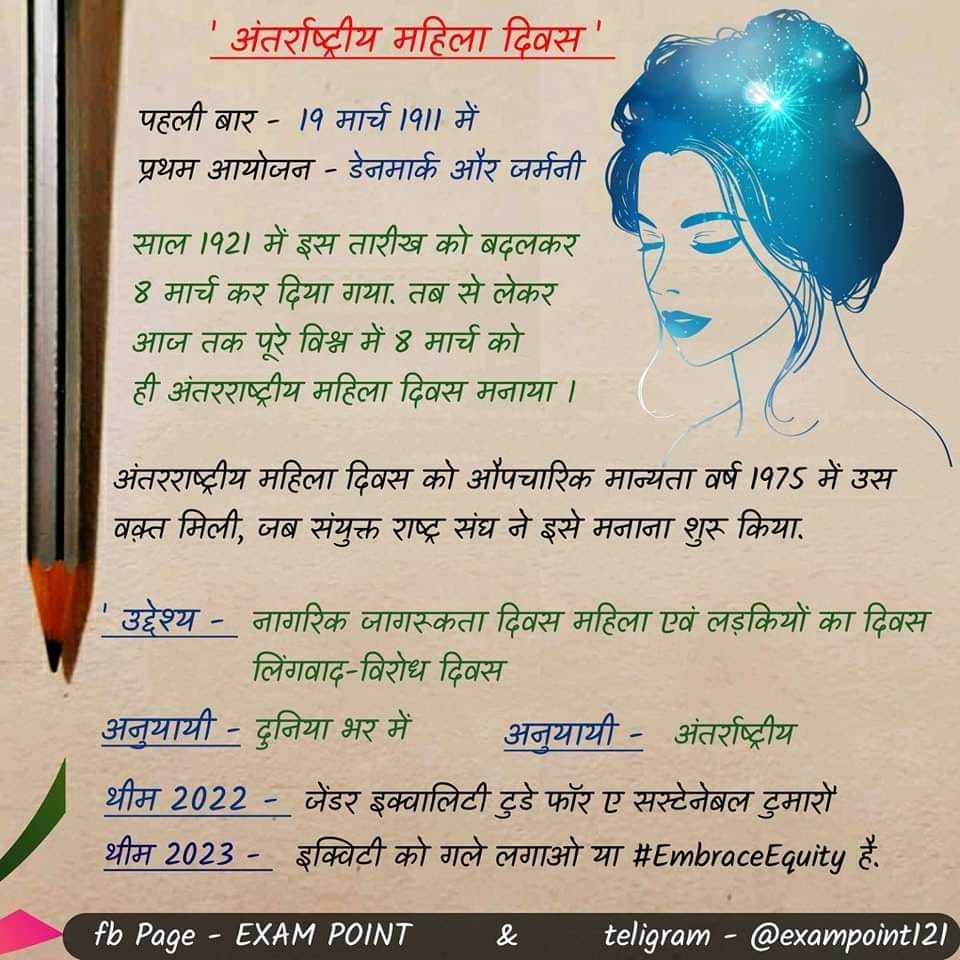 ' अंतर्राष्ट्रीय महिला दिवस '
पहली बार - 19 मार्च 1911 में
प्रथम आयोजन - डेनमार्क और जर्मनी
साल 1921 में इस तारीख को बदलकर
8 मार्च कर दिया गया. तब से लेकर
आज तक पूरे विश्व में 8 मार्च को
ही अंतरराष्ट्रीय महिला दिवस मनाया ।
अंतरराष्ट्रीय महिला दिवस को औपचारिक मान्यता वर्ष 1975 में उस
वक़्त मिली, जब संयुक्त राष्ट्र संघ ने इसे मनाना शुरू किया.
' उद्देश्य - नागरिक जागरूकता दिवस महिला एवं लड़कियों का दिवस
लिंगवाद-विरोध दिवस
अनुयायी - दुनिया भर में अनुयायी - अंतर्राष्ट्रीय
थीम 2022 - जेंडर इक्वालिटी टुडे फॉर ए सस्टेनेबल टुमारो'
थीम 2023 - इक्विटी को गले लगाओ या #EmbraceEquity है.
fb Page - EXAM POINT & teligram - @exampoint121